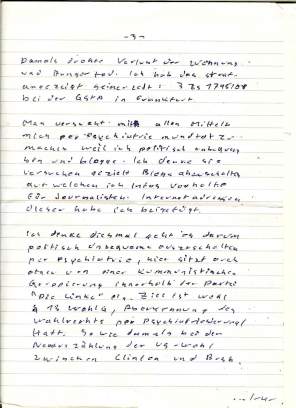 - 3 -
Damals drohte Verlust der Wohnung
und Hungertod. Ich hab das
angezeigt seinerzeit: 3 Zs 1795/08
bei der GStA in Frankfurt
Man versucht mit allen Mitteln
mich per Psychiatrie mundtot zu
machen weil ich politisch
bin und blogge. Ich denke sie
versuchen gezielt Blogs abzuschalten
auf welchen ich Infos vorhalte
für Journalisten. Internetadressen
dieser habe ich beigefügt.
Ich denke diesmal geht es darum
politisch Unbequeme auszuschalten
per Psychiatrie, hier sitzt auch
etwas von einer Kommunistischen
Gruppierung innerhalb der Partei
"Die Linke" ein. Ziel ist wohl
§ 13 WahlG, Aberkennung des
Wahlrechts per Psychiatrisierung/
Haft. So wie damals bei der
Neuauszählung der US-Wahl
zwischen Clinton und Bush.